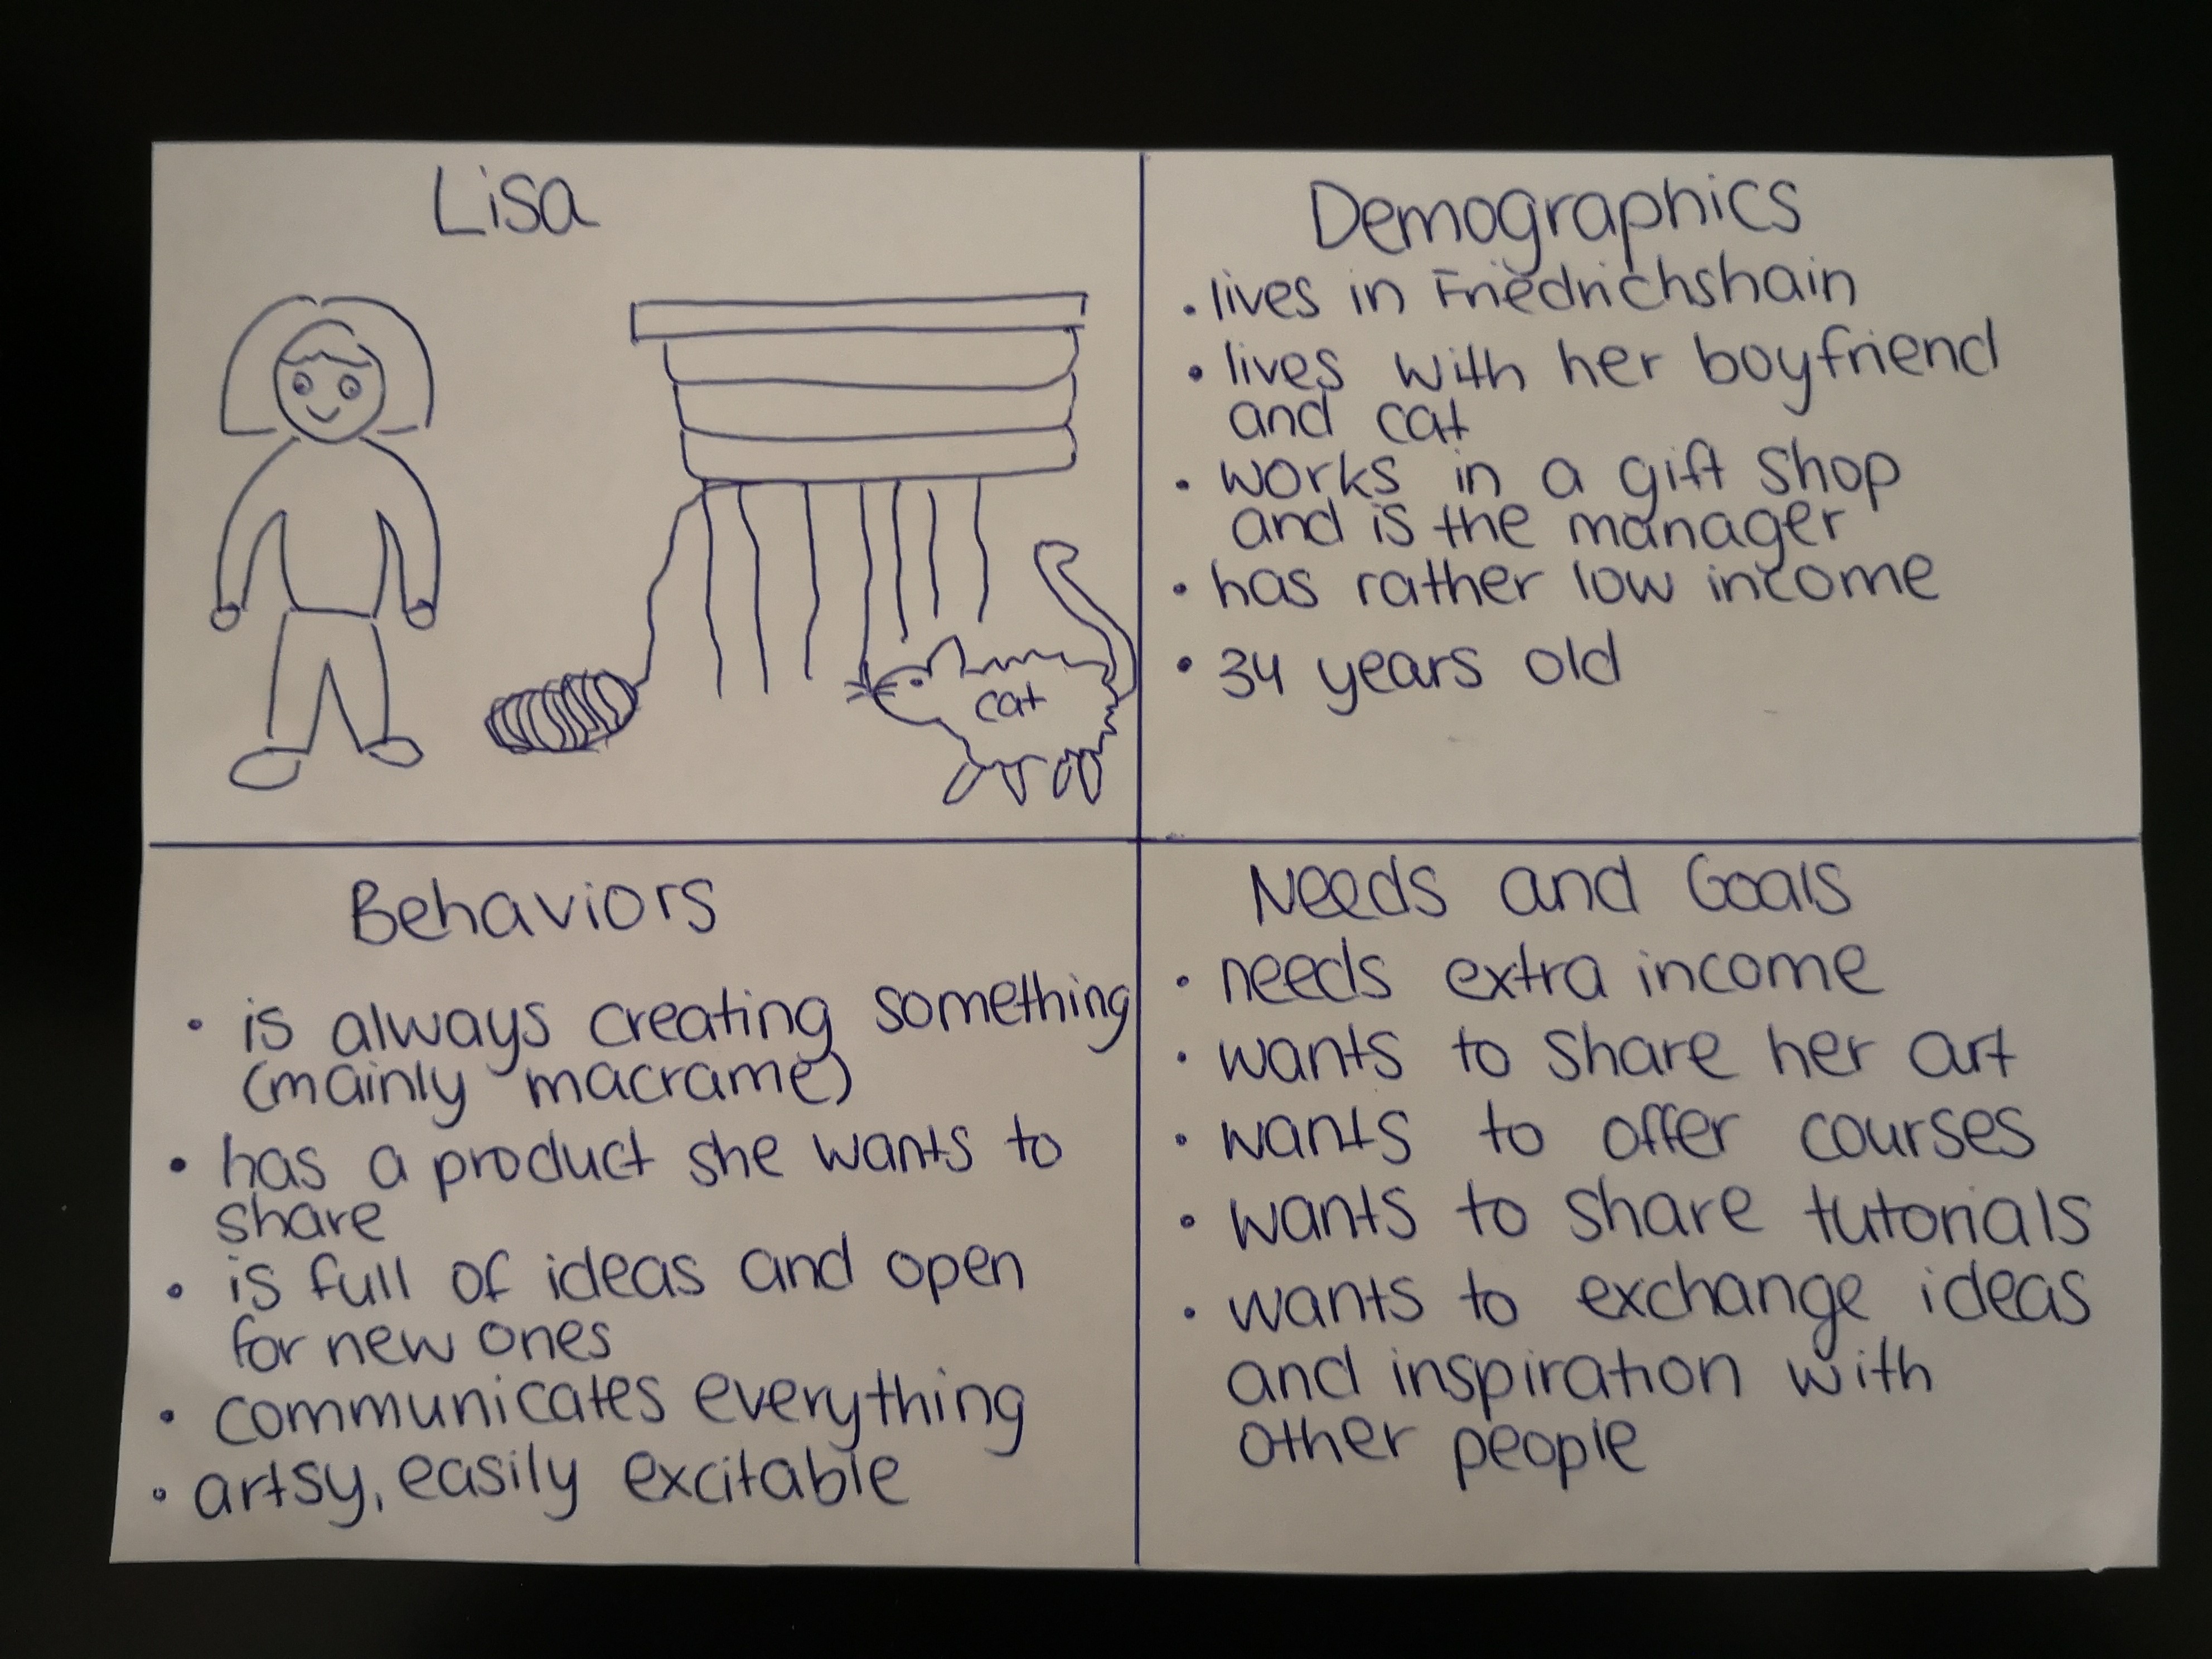 Lisa
cat
Demographics
• lives in Friedrichshain
• lives with her boyfriend
and cat
• works in a gift shop
and is the manager
• has rather low income
• 34 years old
Behaviors
• is always creating something
(mainly macrame)
• has a product she wants to
share
• is full of ideas and open
for new ones
• communicates everything
• artsy, easily excitable
Needs and Goals
• needs extra income
• wants to share her art
• wants to offer courses
• wants to share tutorials
• wants to exchange ideas
and inspiration with
other people